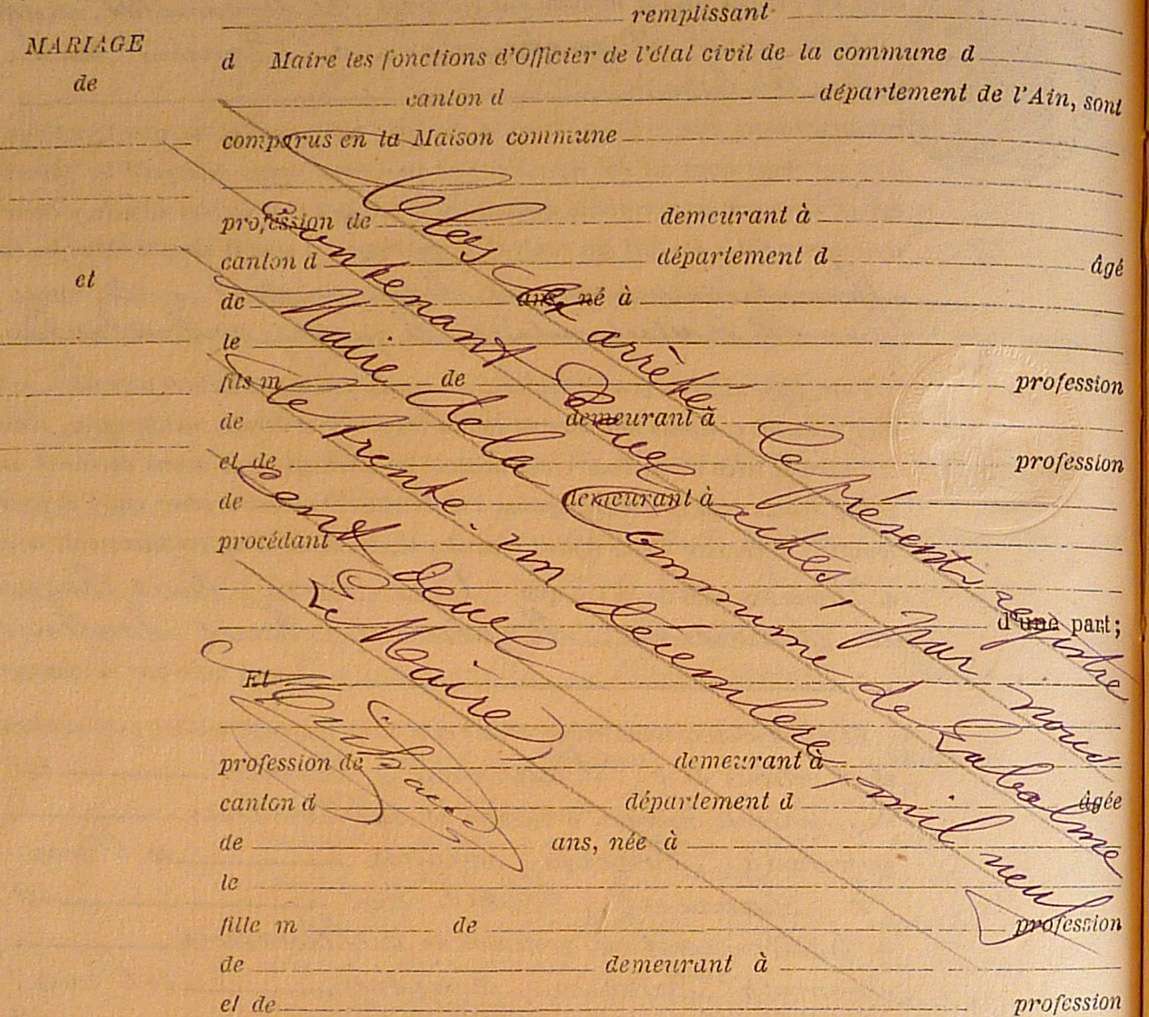 remplissant
MARIAGE
d Maire les fonctions d'Officier de l'état civil de la commune d
de
canton d département de l'Ain, sont
comparus en la Maison commune
profession de demeurant à
canton d département d âgé
et
de ans, né à
le
fils m de profession
de demeurant à
et de profession
de demeurant à
procédant
d'une part;
Et
profession de demeurant à
canton d département d âgée
de ans, née à
le
fille m de profession
de demeurant à
et de profession
Clos et arrêté le présent registre
Contenant deux actes, par nous
Maire de la Commune de Labalme
le trente-un décembre, mil neuf
cent deux
Le Maire